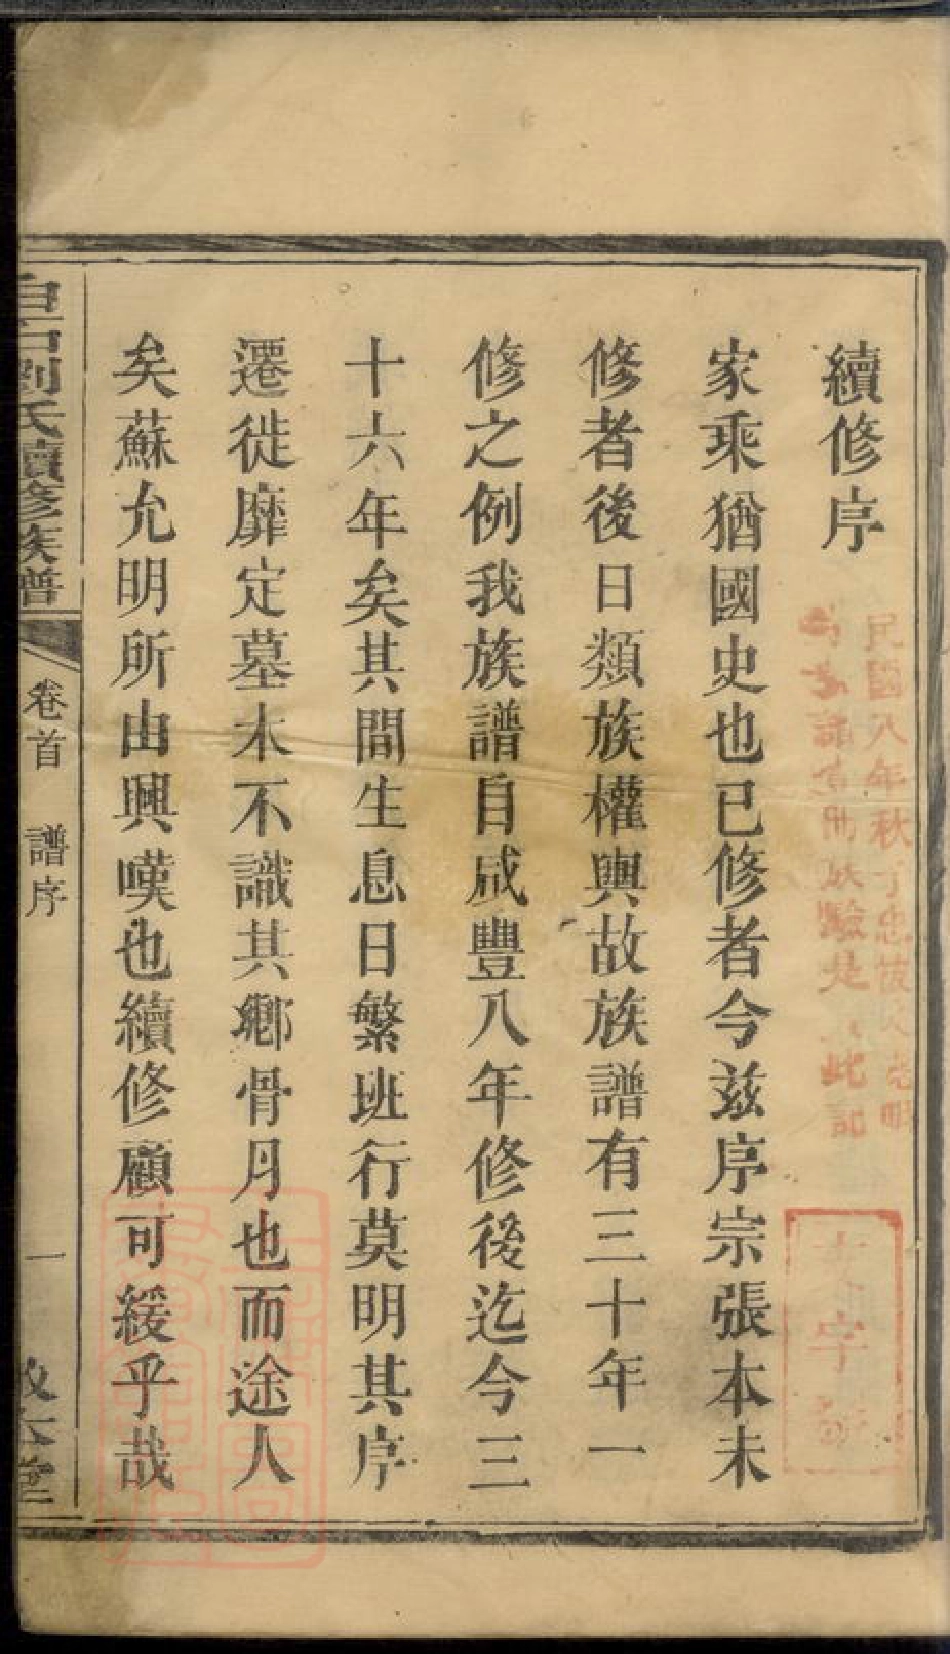 續修序
家乘猶國史也已修者今兹序宗張本未
修者後日類族權輿故族譜有三十年一
修之例我族譜自咸豐八年修後迄今三
十六年矣其間生息日繁班行莫明其序
遷徙靡定墓木不識其鄉骨月也而途人
矣蘇允明所由興嘆也續修顧可緩乎哉
白石劉氏續修族譜
卷首 譜序
一
民國八年秋
此記
字號